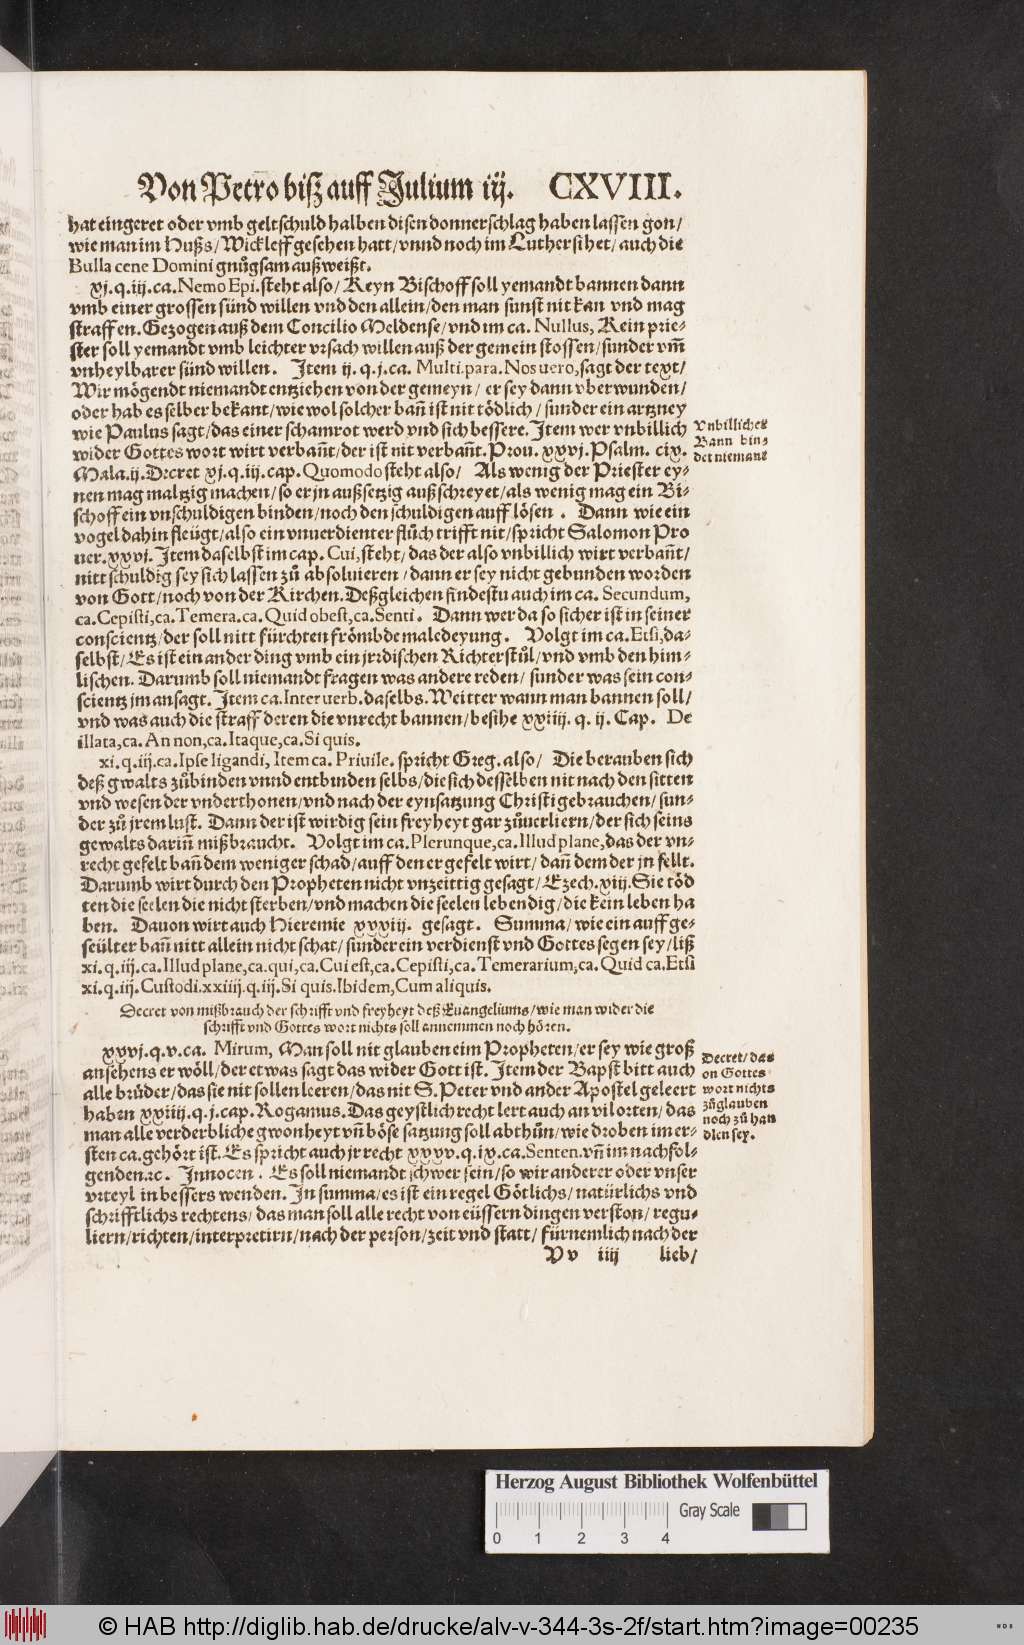 Von Petro biß auff Julium iij. CXVIII.
hat eingeret oder vmb geltschuld halben disen donnerschlag haben lassen gon/
wie man im Hußs/Wickleff gesehen hatt/vnnd noch im Luther sihet/auch die
Bulla cene Domini gnůgsam außweißt.
xj.q.iij.ca.Nemo Epi.steht also/Keyn Bischoff soll yemandt bannen dann
vmb einer grossen sünd willen vnd den allein/den man sunst nit kan vnd mag
straffen.Gezogen auß dem Concilio Meldense/vnd im ca. Nullus, Kein prie-
ster soll yemandt vmb leichter vrsach willen auß der gemein stossen/sunder vm̃
vnheylbarer sünd willen. Item ij.q.j.ca. Multi.para.Nos uero,sagt der text/
Wir mögendt niemandt entziehen von der gemeyn/ er sey dann vberwunden/
oder hab es selber bekant/wie wol solcher bañ ist nit tödlich/sunder ein artzney
wie Paulus sagt/das einer schamrot werd vnd sich bessere.Item wer vnbillich
wider Gottes wort wirt verbañt/der ist nit verbañt.Prou.xxvj.Psalm. cix.
Mala.ij.Decret xj.q.iij.cap.Quomodo steht also/ Als wenig der Priester ey-
nen mag maltzig machen/so er jn außsetzig außschreyet/als wenig mag ein Bi-
schoff ein vnschuldigen binden/noch den schuldigen auff lösen. Dann wie ein
vogel dahin fleügt/also ein vnuerdienter flůch trifft nit/spricht Salomon Pro
uer.xxvj.Item daselbst im cap.Cui,steht/das der also vnbillich wirt verbañt/
nitt schuldig sey sich lassen zů absoluieren/dann er sey nicht gebunden worden
von Gott/noch von der Kirchen.Deßgleichen findestu auch im ca. Secundum,
ca.Cepisti,ca.Temera.ca.Quid obest,ca.Senti. Dann wer da so sicher ist in seiner
conscientz/der soll nitt fürchten frömbde maledeyung. Volgt im ca.Etsi,da-
selbst/Es ist ein ander ding vmb ein jrrdischen Richterstůl/vnd vmb den him-
lischen.Darumb soll niemandt fragen was andere reden/sunder was sein con-
scientz jm ansagt.Item ca.Inter uerb.daselbs.Weitter wann man bannen soll/
vnd was auch die straff deren die vnrecht bannen/besihe xxiiij.q.ij.Cap. De
illata,ca.An non,ca.Itaque,ca.Si quis.
xi.q.iij.ca.Ipse ligandi, Item ca. Priuile. spricht Greg.also/ Die berauben sich
deß gwalts zůbinden vnnd entbinden selbs/die sich desselben nit nach den sitten
vnd wesen der vnderthonen/vnd nach der eynsatzung Christi gebrauchen/sun-
der zů jrem lust. Dann der ist wirdig sein freyheyt gar zůuerliern/der sich seins
gewalts dariñ mißbraucht. Volgt im ca.Plerunque,ca.Illud plane,das der vn-
recht gefelt bañ dem weniger schad/auff den er gefelt wirt/dañ dem der jn fellt.
Darumb wirt durch den Propheten nicht vnzeittig gesagt/Ezech.xiij.Sie töd
ten die seelen die nicht sterben/vnd machen die seelen lebendig/die kein leben ha
ben. Dauon wirt auch Hieremie xxxiij. gesagt. Summa/wie ein auff ge-
seülter bañ nitt allein nicht schat/sunder ein verdienst vnd Gottes segen sey/liß
xi.q.iij.ca.Illud plane,ca.qui,ca.Cui est,ca.Cepisti,ca.Temerarium,ca.Quid ca.Etsi
xi.q.iij.Custodi.xxiiij.q.iij.Si quis.Ibidem,Cum aliquis.
Decret von mißbrauch der schrifft vnd freyheyt deß Euangeliums/wie man wider die
schrifft vnd Gottes wort nichts soll annemmen noch hören.
xxvj.q.v.ca. Mirum, Man soll nit glauben eim Propheten/er sey wie groß
ansehens er wöll/der etwas sagt das wider Gott ist.Item der Bapst bitt auch
alle brüder/das sie nit sollen leeren/das nit S.Peter vnd ander Apostel geleert
haben xxiiij.q.j.cap.Rogamus.Das geystlich recht lert auch an vil orten/das
man alle verderbliche gwonheyt vñ böse satzung soll abthůn/wie droben im er-
sten ca.gehört ist.Es spricht auch jr recht xxxv.q.ix.ca.Senten.vñ im nachfol-
genden.ꝛc. Innocen. Es soll niemandt schwer sein/so wir anderer oder vnser
vrteyl in bessers wenden.In summa/es ist ein regel Götlichs/natürlichs vnd
schrifftlichs rechtens/das man soll alle recht von eüssern dingen verston/regu-
liern/richten/interpretirn/nach der person/zeit vnd statt/fürnemlich nach der
Vv iiij lieb/
Vnbillicher
Bann bin-
det niemant
Decret/das
on Gottes
wort nichts
zůglauben
noch zů han
dlen sey.
Herzog August Bibliothek Wolfenbüttel
Gray Scale
0 1 2 3 4
© HAB http://diglib.hab.de/drucke/alv-v-344-3s-2f/start.htm?image=00235